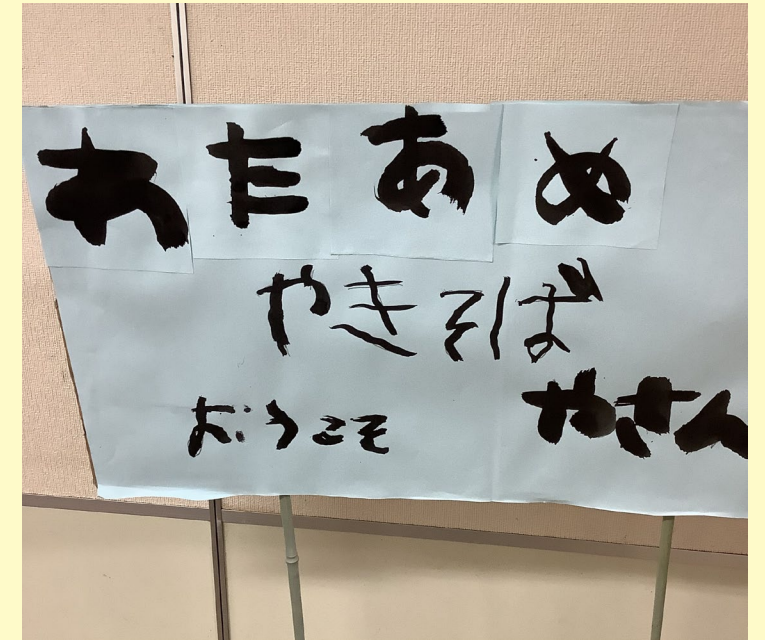 わたあめ
やきそば
ようこそ やさん